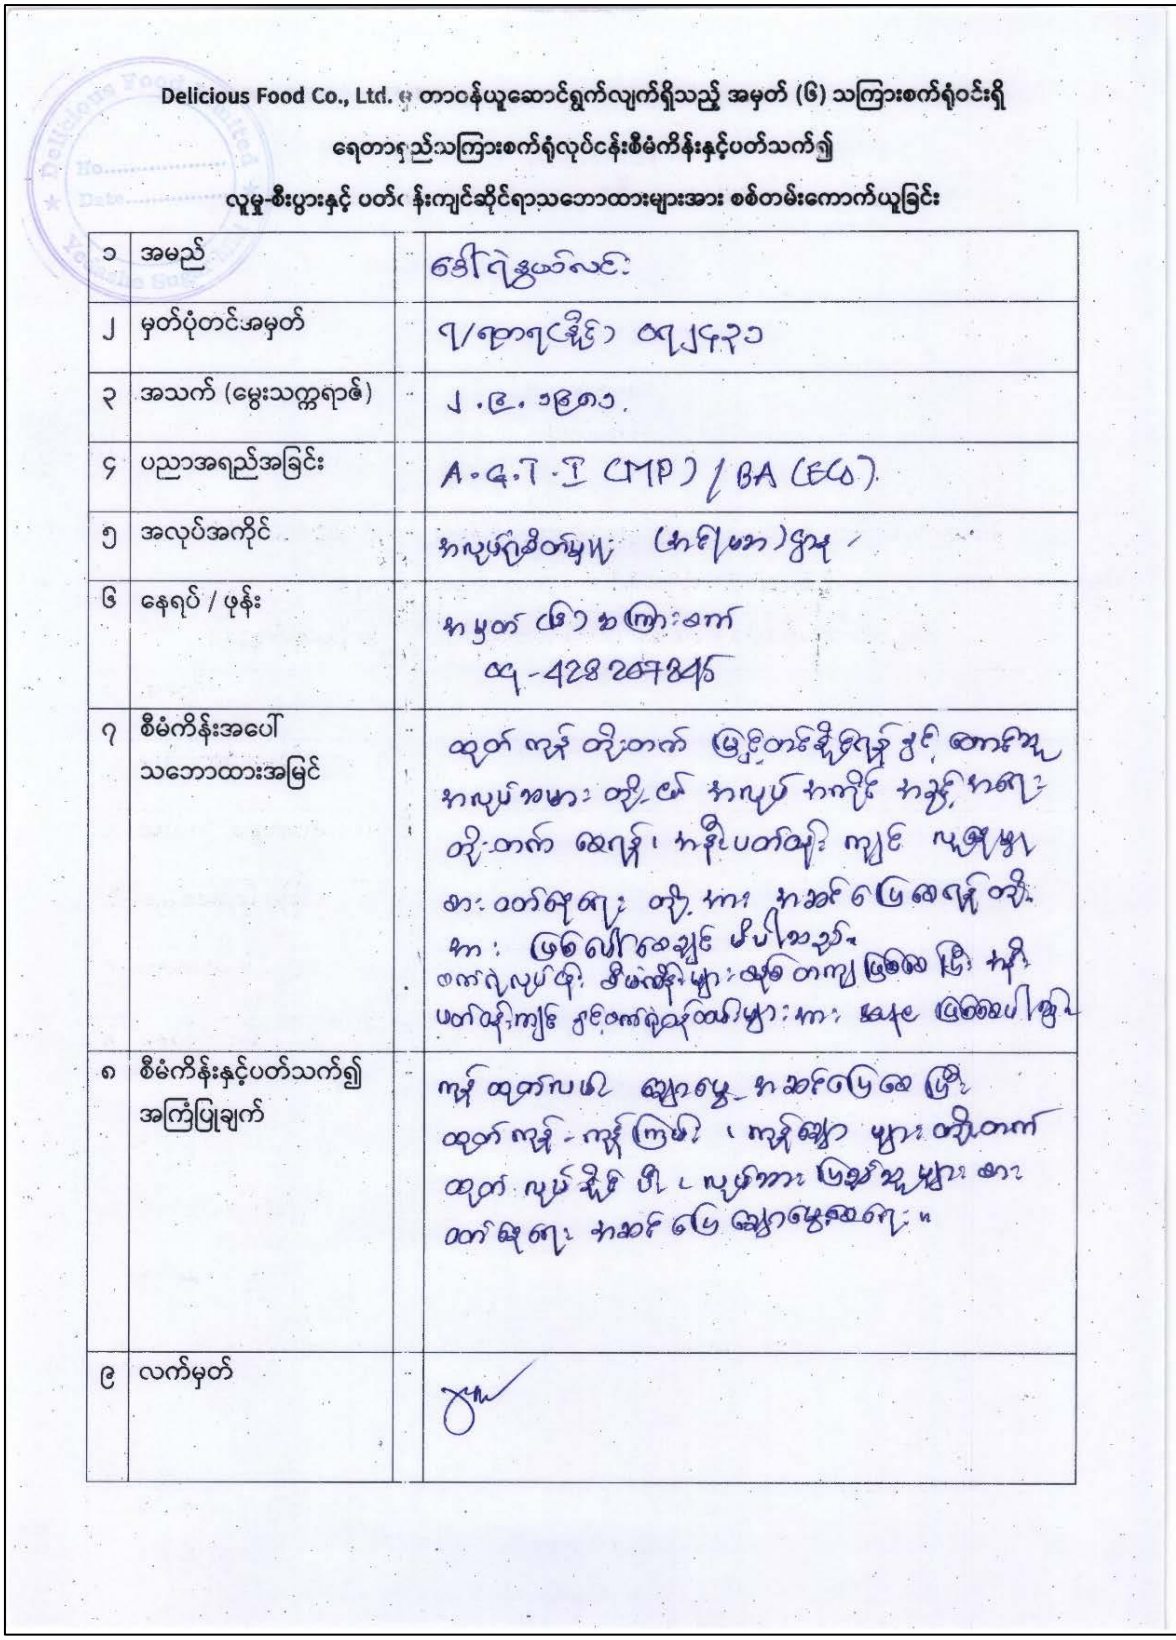 Delicious Food Co., Ltd. မှ တာဝန်ယူဆောင်ရွက်လျက်ရှိသည့် အမှတ် (၆) သကြားစက်ရုံဝင်းရှိ
ရေတာရှည်သကြားစက်ရုံလုပ်ငန်းစီမံကိန်းနှင့်ပတ်သက်၍
လူမှု-စီးပွားနှင့် ပတ်ဝန်းကျင်ဆိုင်ရာသဘောထားများအား စစ်တမ်းကောက်ယူခြင်း
Delicious Food
No.
Date
၁ အမည် ဒေါ်ရဲနွယ်လင်း
၂ မှတ်ပုံတင်အမှတ် ၇/ရတရ(နိုင်) ၀၇၂၄၃၁
၃ အသက် (မွေးသက္ကရာဇ်) ၂.၉.၁၉၈၁.
၄ ပညာအရည်အခြင်း A.G.T.I (MP) / BA (ECO).
၅ အလုပ်အကိုင် အလုပ်ရုံစိတ်မှူး (အင်/မအ)ဌာန
၆ နေရပ် / ဖုန်း အမှတ် (၆) သကြားစက်
09-428207845
၇ စီမံကိန်းအပေါ်
သဘောထားအမြင်
ထုတ်ကုန် တိုးတက် မြှင့်တင်နိုင်ရန် နှင့် တောင်သူ
အလုပ်သမား တို့၏ အလုပ် အကိုင် အခွင့် အရေး
တိုးတက် စေရန်၊ အနီးပတ်ဝန်း ကျင် လူနေမှု
စား ဝတ်နေရေး တို့ အား အဆင်ပြေစေရန် တို့
အား ဖြစ်ပေါ်စေချင် မိပါသည်။
စက်ရုံလုပ်ငန်း စီမံကိန်းများ ဖြစ်စေပြီး အနီး
ပတ်ဝန်းကျင် နှင့်စက်ရုံဝန်ထမ်းများအား safe ဖြစ်စေပါ
၈ စီမံကိန်းနှင့်ပတ်သက်၍
အကြံပြုချက်
ကုန် ထုတ်လမ်း ချောမွေ့ အဆင်ပြေစေ ပြီး
ထုတ်ကုန် - ကုန်ကြမ်း ၊ ကုန်ချော များ တိုးတက်
ထုတ် လုပ်နိုင် ပြီး ၊ လုပ်အား သူများ စား
ဝတ်နေရေး အဆင်ပြေ ချောမွေ့စေရေး။
၉ လက်မှတ်